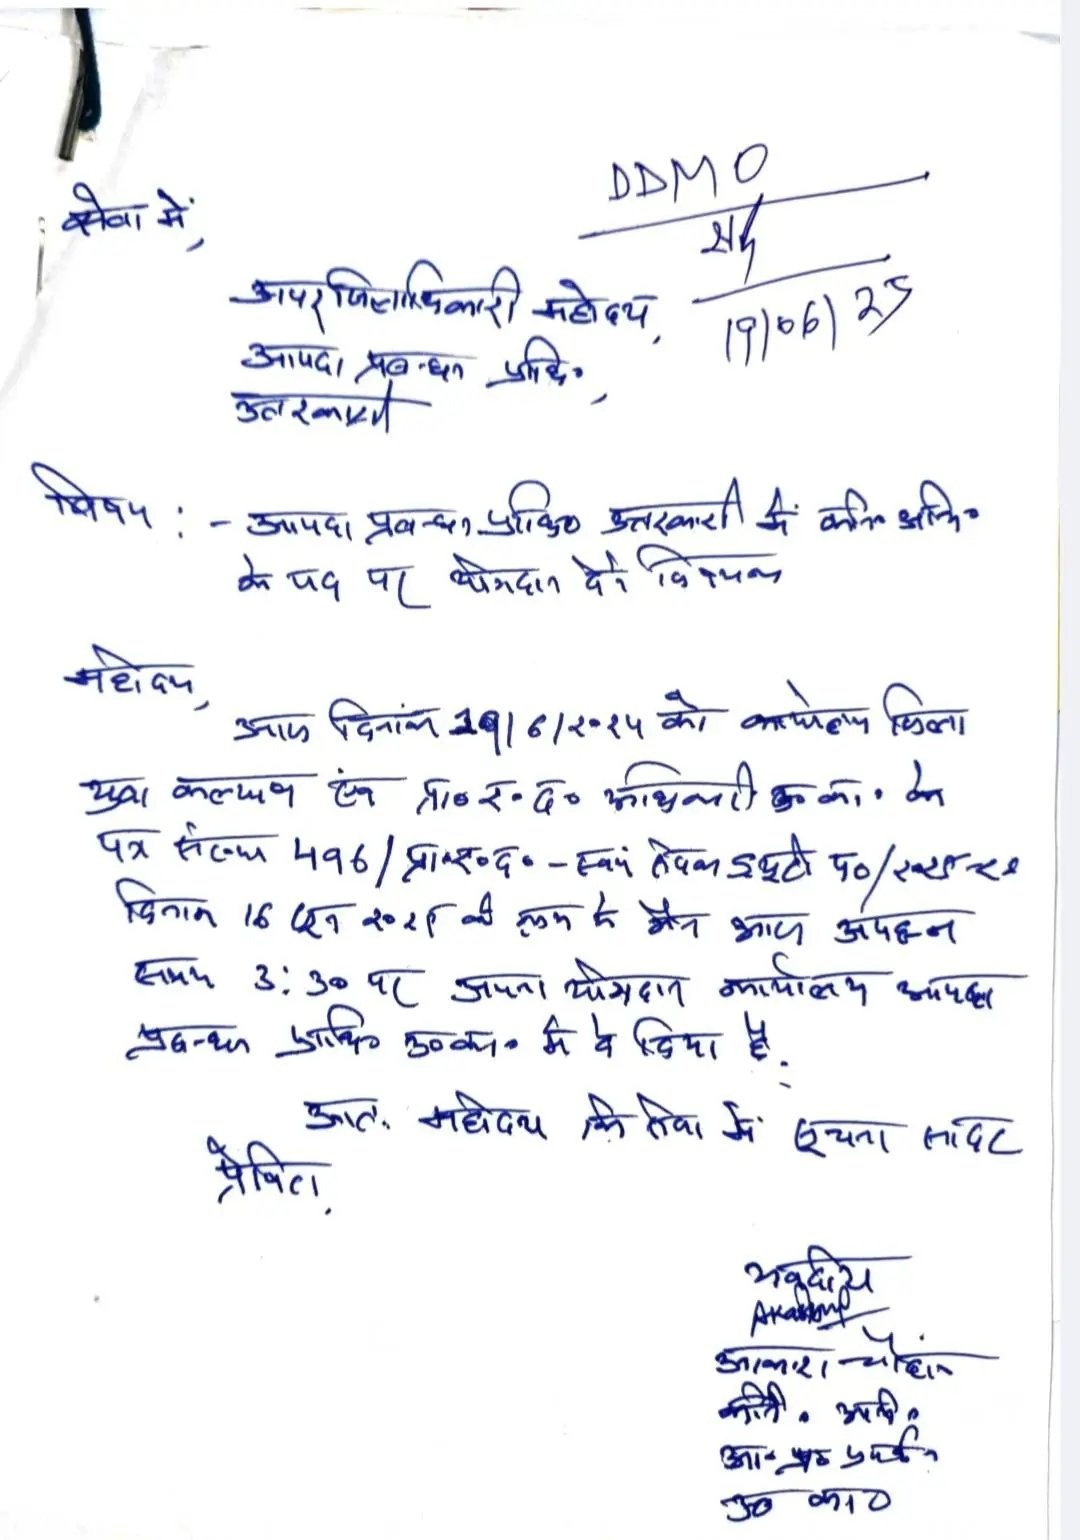 DDMO
19/06/25
सेवा में,
अपर जिलाधिकारी महोदय,
आपदा प्रबन्धन प्राधि०,
उत्तरकाशी
विषय :- आपदा प्रबन्धन प्राधि० उत्तरकाशी में कनि० अभि०
के पद पर योगदान देने विषयक
महोदय,
आज दिनांक 19/6/२०२५ को कार्यालय जिला
युवा कल्याण एंव प्रा०र०द० अधिकारी उ०का० के
पत्र संख्या 496/प्रा०र०द०-स्वयं सेवक ड्यूटी प०/
दिनांक 16 जून २०२५ के क्रम में मैंने आज अपहरन
समय 3:30 पर अपना योगदान कार्यालय आपदा
प्रबन्धन प्राधि० उ०का० में दे दिया है.
अतः महोदय कि सेवा में सूचना सादर
प्रेषित.
भवदीय
Akash
आकाश चौहान
कनि० अभि०
आ० प्र० प्राधि०
उ० का०